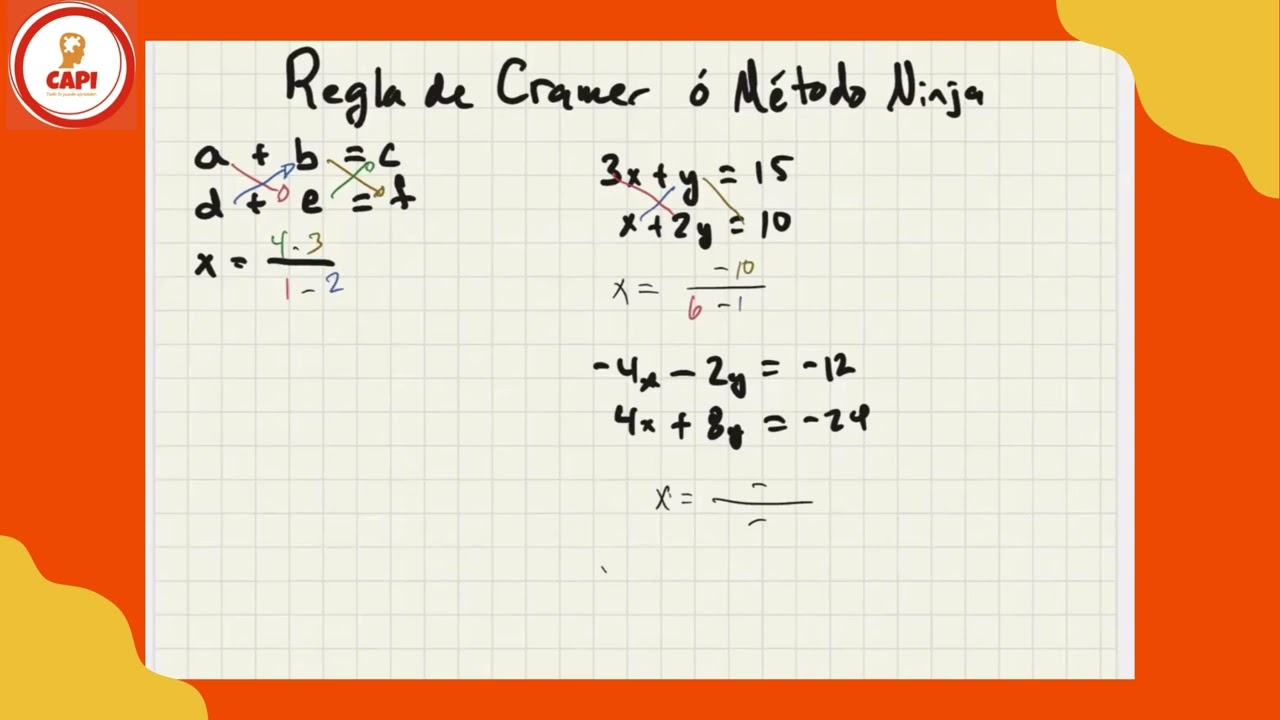 CAPI
Regla de Cramer ó Método Ninja
a + b = c
d + e = f
x = 4 . 3
1 - 2
3x + y = 15
x + 2y = 10
x = - 10
6 - 1
-4x - 2y = -12
4x + 8y = -24
x = -
-